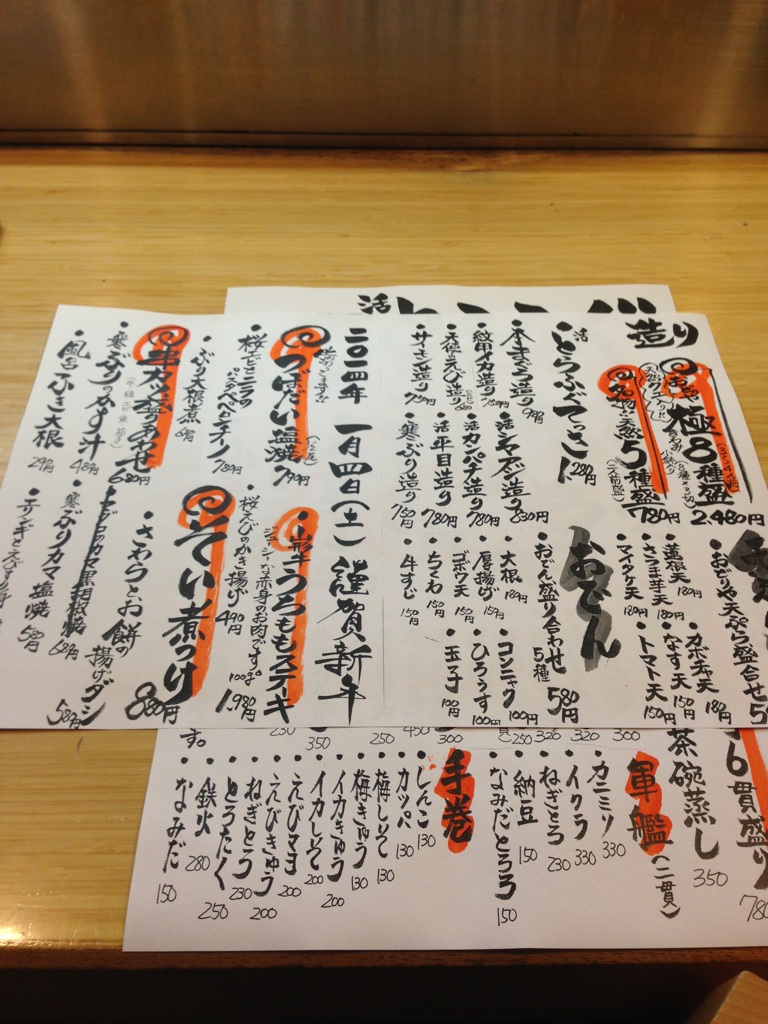 造り
極8種盛
2,480円
名物!!天然5種盛
(二人前盛)
780円
活とらふぐてっさ
1,280円
・本まぐろ造り 980円
・紋甲イカ造り 780円
・天使のえび造り
・サーモン造り 750円
・活シマアジ造り 830円
・活カンパチ造り 780円
・活平目造り 780円
・寒ぶり造り 750円
・おどりや天ぷら盛合せ
・蓮根天 180円
・さつま芋天 180円
・マイタケ天 180円
・カボチャ天 180円
・なす天 150円
・トマト天 150円
おでん
・おでん盛り合わせ 5種 580円
・大根 180円
・厚揚げ 150円
・ゴボウ天 150円
・ちくわ 150円
・牛すじ 150円
・コンニャク 100円
・ひろうす 100円
・玉子 100円
二〇一四年 一月四日(土) 謹賀新年
つぼだい塩焼 790円
・桜えびとニラの
ペペロンチーノ 780円
・ぶり大根煮
串カツ盛あわせ 680円
・寒ぶりのかす汁 480円
・風呂ふき大根 290円
・山形牛うちももステーキ
ジューシィな赤身のお肉です。
100g 1,980円
・桜えびのかき揚げ 490円
そい煮つけ 880円
・さわらとお餅の揚げダシ 580円
・トロアジのカマ黒胡椒焼 680円
・寒ぶりカマ塩焼 580円
活
6貫盛り
780
茶碗蒸し 350
軍艦(二貫)
・カニミソ 330
・イクラ 330
・ねぎとろ 230
・納豆 150
・なみだとろろ 150
手巻
・しんこ 130
・カッパ 130
・梅しそ 130
・梅きゅう 130
・イカきゅう 200
・イカしそ 200
・えびマヨ 200
・えびきゅう 200
・ねぎとろ 230
・とろたく 250
・鉄火 280
・なみだ 150
す。
350
250
450
300
250
320
320
300